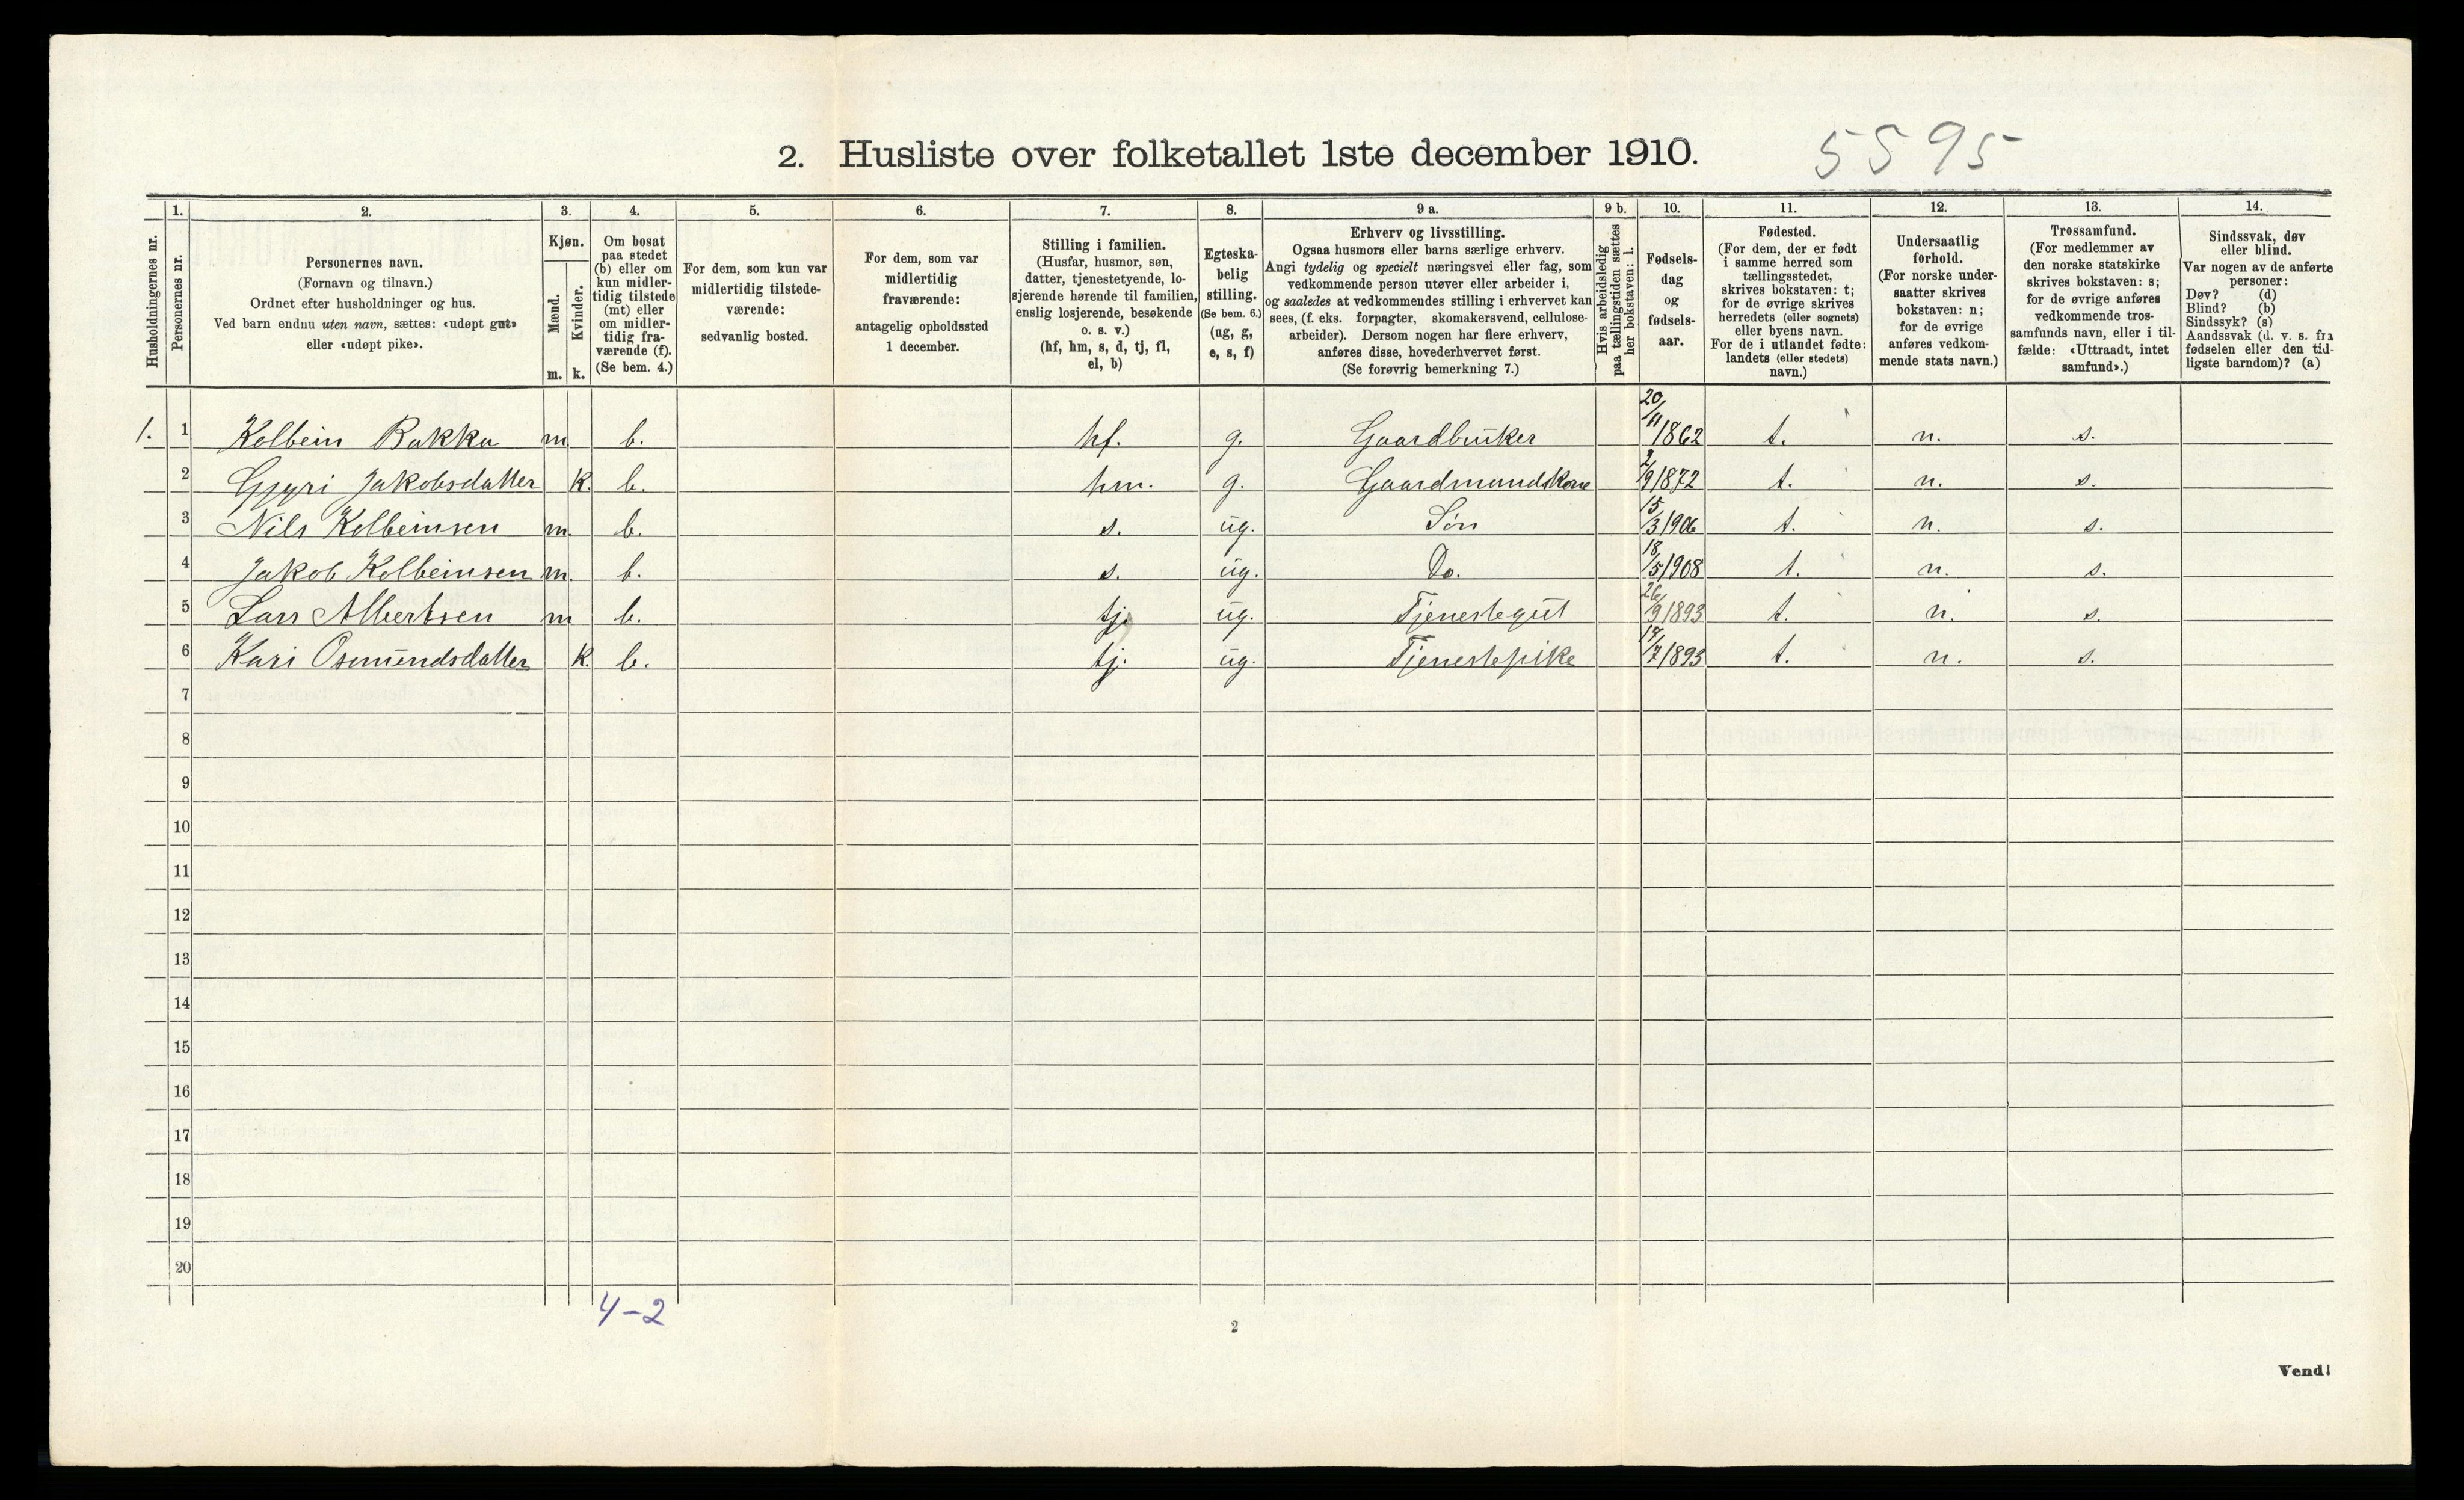 2. Husliste over folketallet 1ste december 1910. 5595
1. 2. 3. 4. 5. 6. 7. 8. 9 a. 9 b. 10. 11. 12. 13. 14.
Husholdningernes nr.
Personernes nr.
Personernes navn.
(Fornavn og tilnavn.)
Ordnet efter husholdninger og hus.
Ved barn endnu uten navn, sættes: «udøpt gut»
eller «udøpt pike».
Kjøn.
Mænd.
Kvinder.
m. k.
Om bosat
paa stedet
(b) eller om
kun midler-
tidig tilstede
(mt) eller
om midler-
tidig fra-
værende (f).
(Se bem. 4.)
For dem, som kun var
midlertidig tilstede-
værende:
sedvanlig bosted.
For dem, som var
midlertidig
fraværende:
antagelig opholdssted
1 december.
Stilling i familien.
(Husfar, husmor, søn,
datter, tjenestetyende, lo-
sjerende hørende til familien,
enslig losjerende, besøkende
o. s. v.)
(hf, hm, s, d, tj, fl,
el, b)
Egteska-
belig
stilling.
(Se bem. 6.)
(ug, g,
e, s, f)
Erhverv og livsstilling.
Ogsaa husmors eller barns særlige erhverv.
Angi tydelig og specielt næringsvei eller fag, som
vedkommende person utøver eller arbeider i,
og saaledes at vedkommendes stilling i erhvervet kan
sees, (f. eks. forpagter, skomakersvend, cellulose-
arbeider). Dersom nogen har flere erhverv,
anføres disse, hovederhvervet først.
(Se forøvrig bemerkning 7.)
Hvis arbeidsledig
paa tællingstiden sættes
her bokstaven: l.
Fødsels-
dag
og
fødsels-
aar.
Fødested.
(For dem, der er født
i samme herred som
tællingsstedet,
skrives bokstaven: t;
for de øvrige skrives
herredets (eller sognets)
eller byens navn.
For de i utlandet fødte:
landets (eller stedets)
navn.)
Undersaatlig
forhold.
(For norske under-
saatter skrives
bokstaven: n;
for de øvrige
anføres vedkom-
mende stats navn.)
Trossamfund.
(For medlemmer av
den norske statskirke
skrives bokstaven: s;
for de øvrige anføres
vedkommende tros-
samfunds navn, eller i til-
fælde: «Uttraadt, intet
samfund».)
Sindssvak, døv
eller blind.
Var nogen av de anførte
personer:
Døv? (d)
Blind? (b)
Sindssyk? (s)
Aandssvak (d. v. s. fra
fødselen eller den tid-
ligste barndom)? (a)
1. 1 Kolbein Rakka m b. hf. g. Gaardbruker 20/11 1862 t. n. s.
2 Gyyri Jakobsdatter k. b. hm. g. Gaardmandskone 2/9 1872 t. n. s.
3 Nils Kolbeinsen m. b. s. ug. Søn 15/3 1906 t. n. s.
4 Jakob Kolbeinsen m. b. s. ug. Do. 18/5 1908 t. n. s.
5 Lars Albertsen m b. tj. ug. Tjenestegut 26/9 1893 t. n. s.
6 Kari Osmundsdatter k. b. tj. ug. Tjenestepike 17/7 1893 t. n. s.
7
8
9
10
11
12
13
14
15
16
17
18
19
20
4-2
2
Vend!